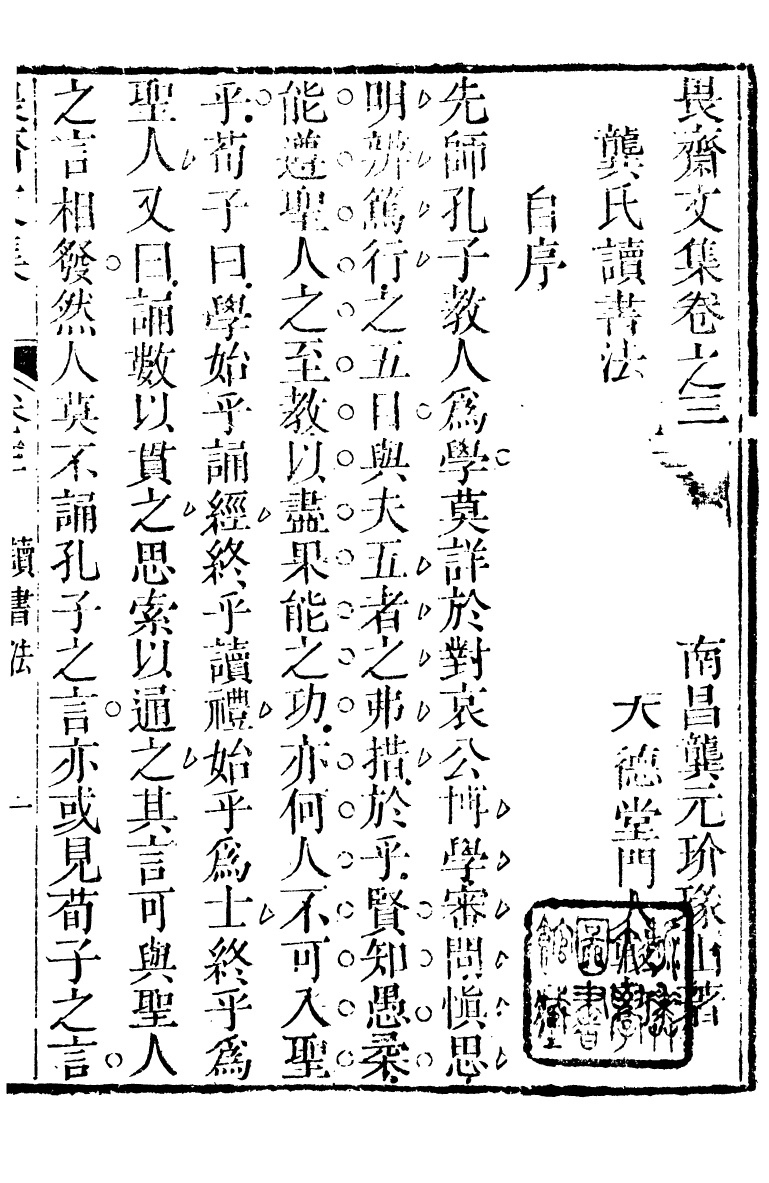 畏齋文集卷之三
南昌龔元玠瑑山著
龔氏讀書法
大德堂門人
自序
先師孔子教人爲學莫詳於對哀公博學審問愼思
明辨篤行之五目與夫五者之弗措於乎賢知愚柔
能遵聖人之至教以盡果能之功亦何人不可入聖
乎荀子曰學始乎誦經終乎讀禮始乎爲士終乎爲
聖人又曰誦數以貫之思索以通之其言可與聖人
之言相發然人莫不誦孔子之言亦或見荀子之言
畏齋文集
卷三
讀書法
一
圖書